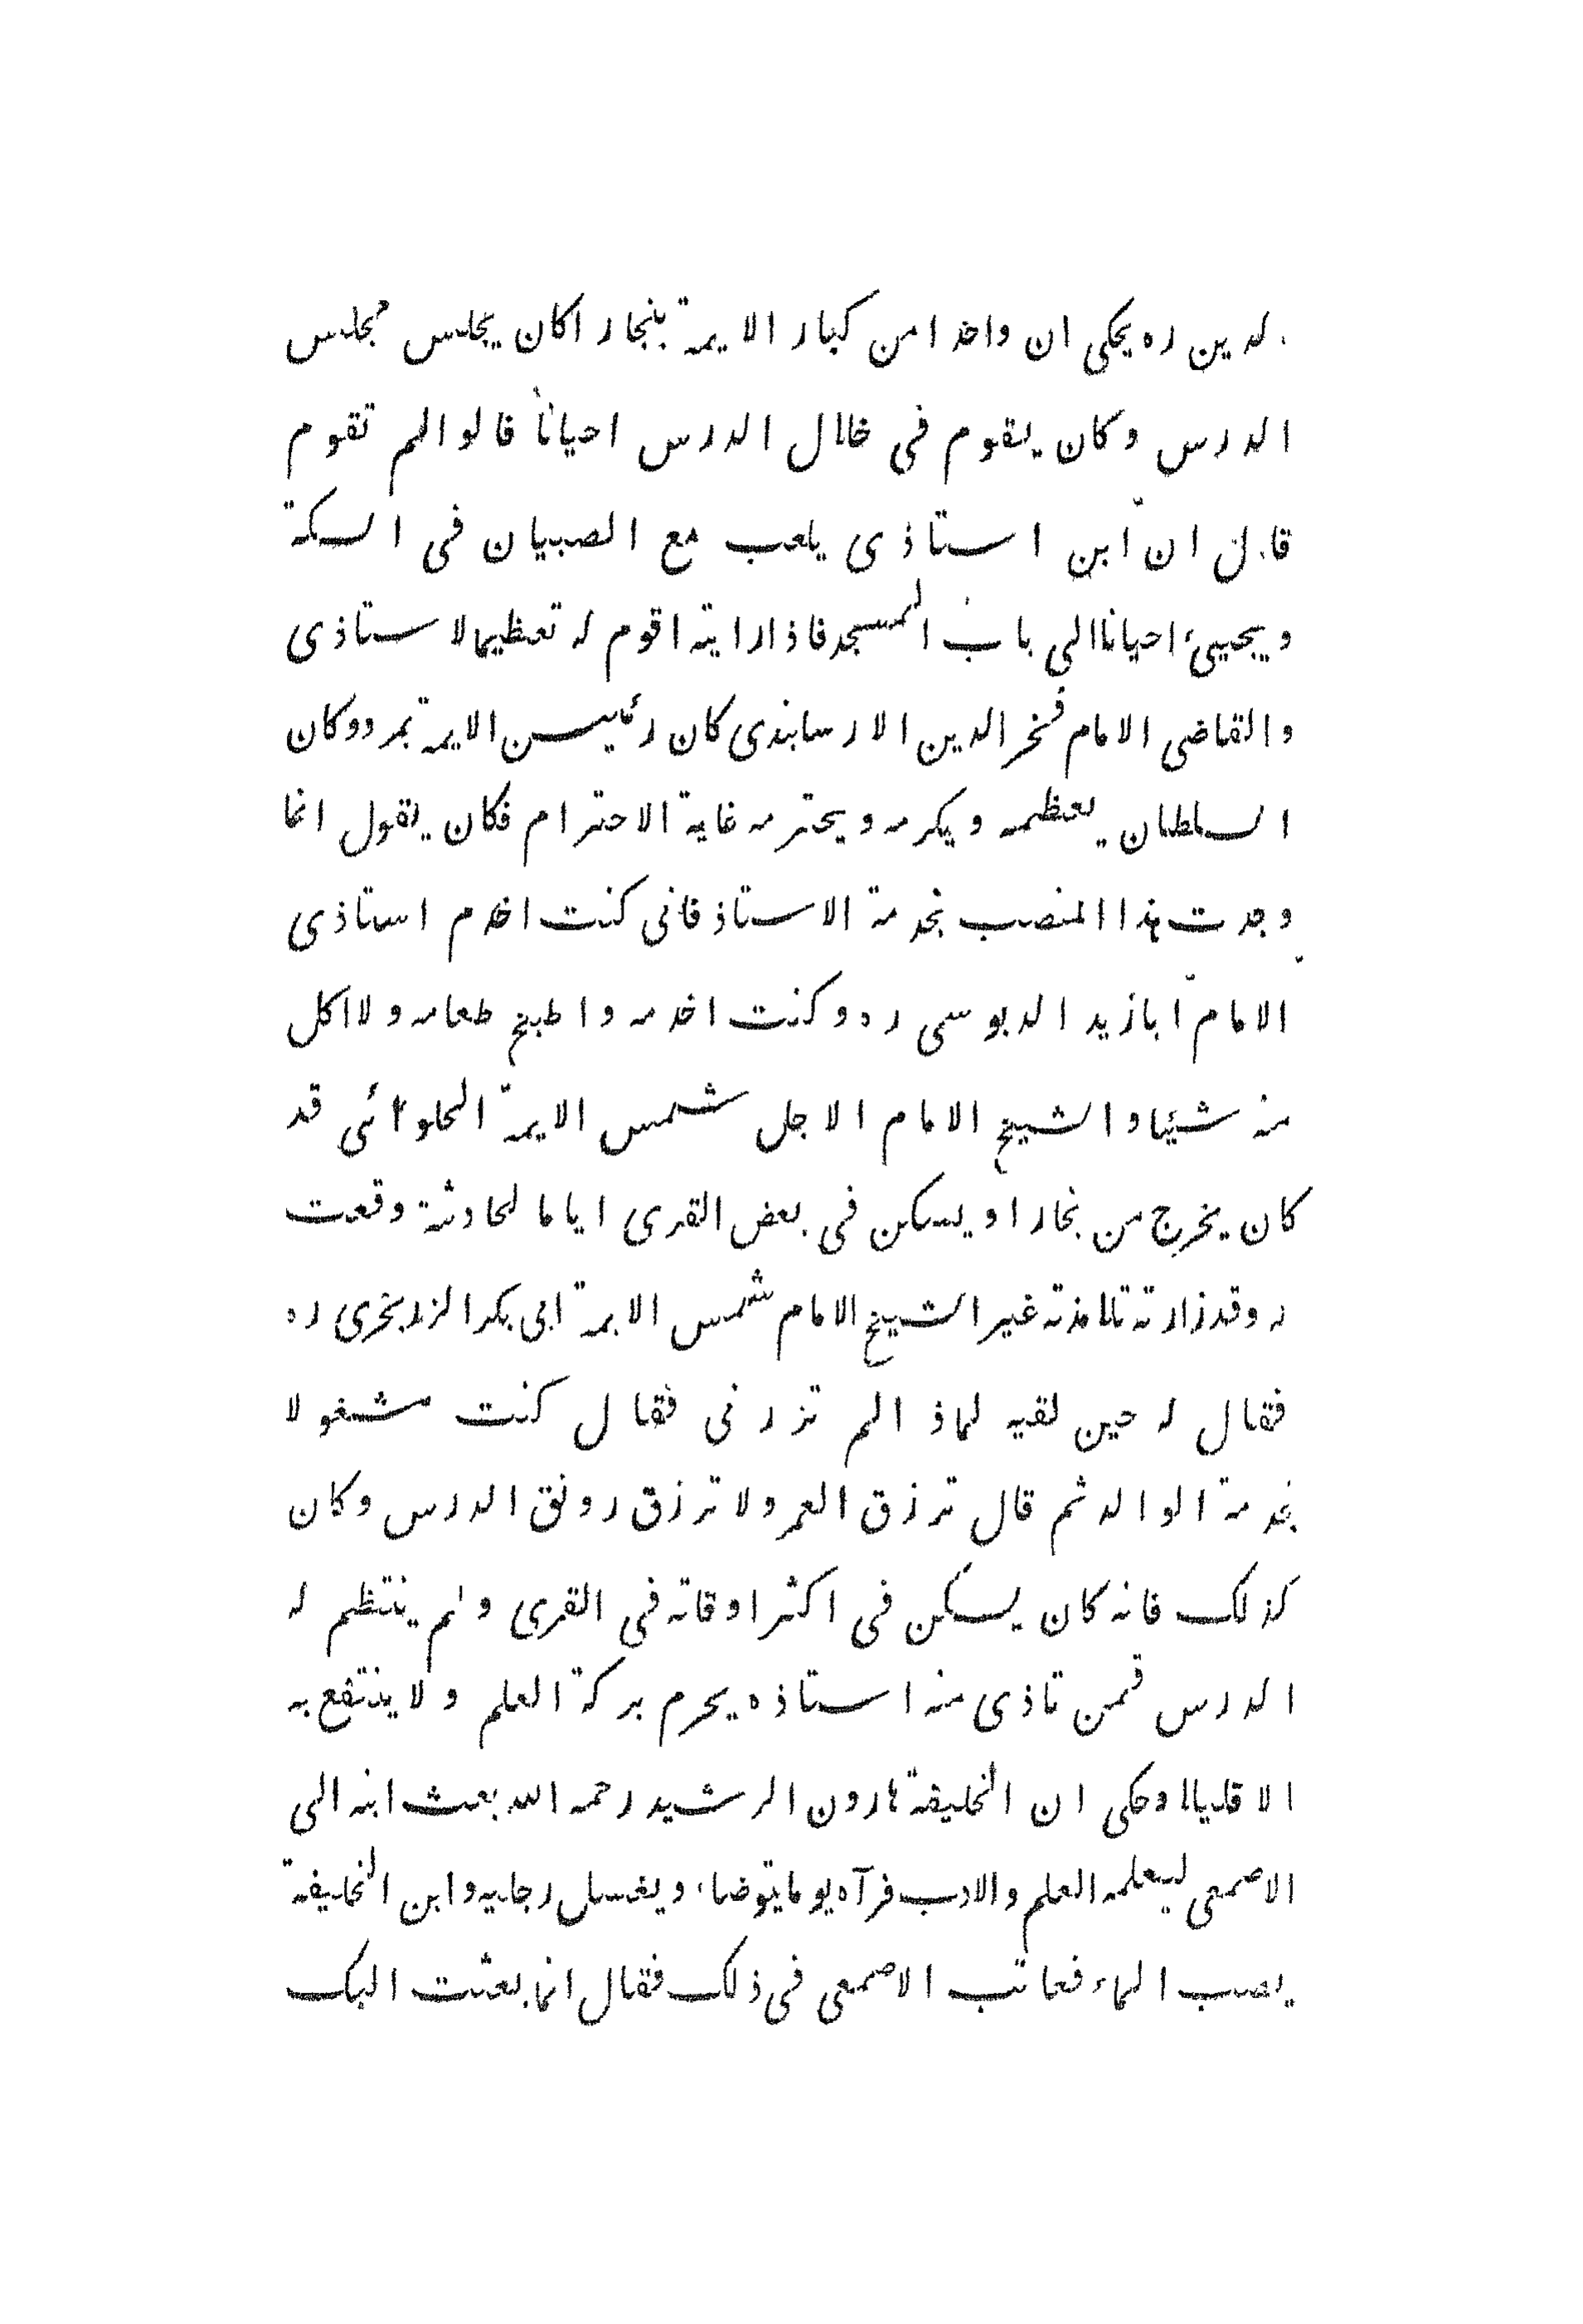 لدين ره يحكى ان واحدا من كبار الايمة بنجارا كان يجلس مجلس
الدرس وكان يقوم فى خلال الدرس احيانا قالوا لم تقوم
قال ان ابن استاذى يلعب مع الصبيان فى السكة
ويجيئ احيانا الى باب المسجد فاذا رايته اقوم له تعظيما لاستاذى
والقاضى الامام فخر الدين الارسابندى كان رئيس الايمة بمرو وكان
السلطان يعظمه ويكرمه ويحترمه غاية الاحترام فكان يقول انما
وجدت هذا المنصب بخدمة الاستاذ فانى كنت اخدم استاذى
الامام ابا زيد الدبوسى ره وكنت اخدمه واطبخ طعامه ولا اكل
منه شيئا والشيخ الامام الاجل شمس الايمة الحلوائى قد
كان يخرج من بخارا ويسكن فى بعض القرى اياما لحادثة وقعت
له وقد زارته تلامذته غير الشيخ الامام شمس الايمة ابى بكر الزربخرى ره
فقال له حين لقيه لماذا لم تزرنى فقال كنت مشغولا
بخدمة الوالد ثم قال ترزق العمر ولا ترزق رونق الدرس وكان
كذلك فانه كان يسكن فى اكثر اوقاته فى القرى ولم ينتظم له
الدرس فمن تاذى منه استاذه يحرم بركة العلم ولا ينتفع به
الا قليلا وحكى ان الخليفة هارون الرشيد رحمه الله بعث ابنه الى
الاصمعى ليعلمه العلم والادب فرآه يوما يتوضاء ويغسل رجليه وابن الخليفة
يصب الماء فعاتب الاصمعى فى ذلك فقال انما بعثت اليك